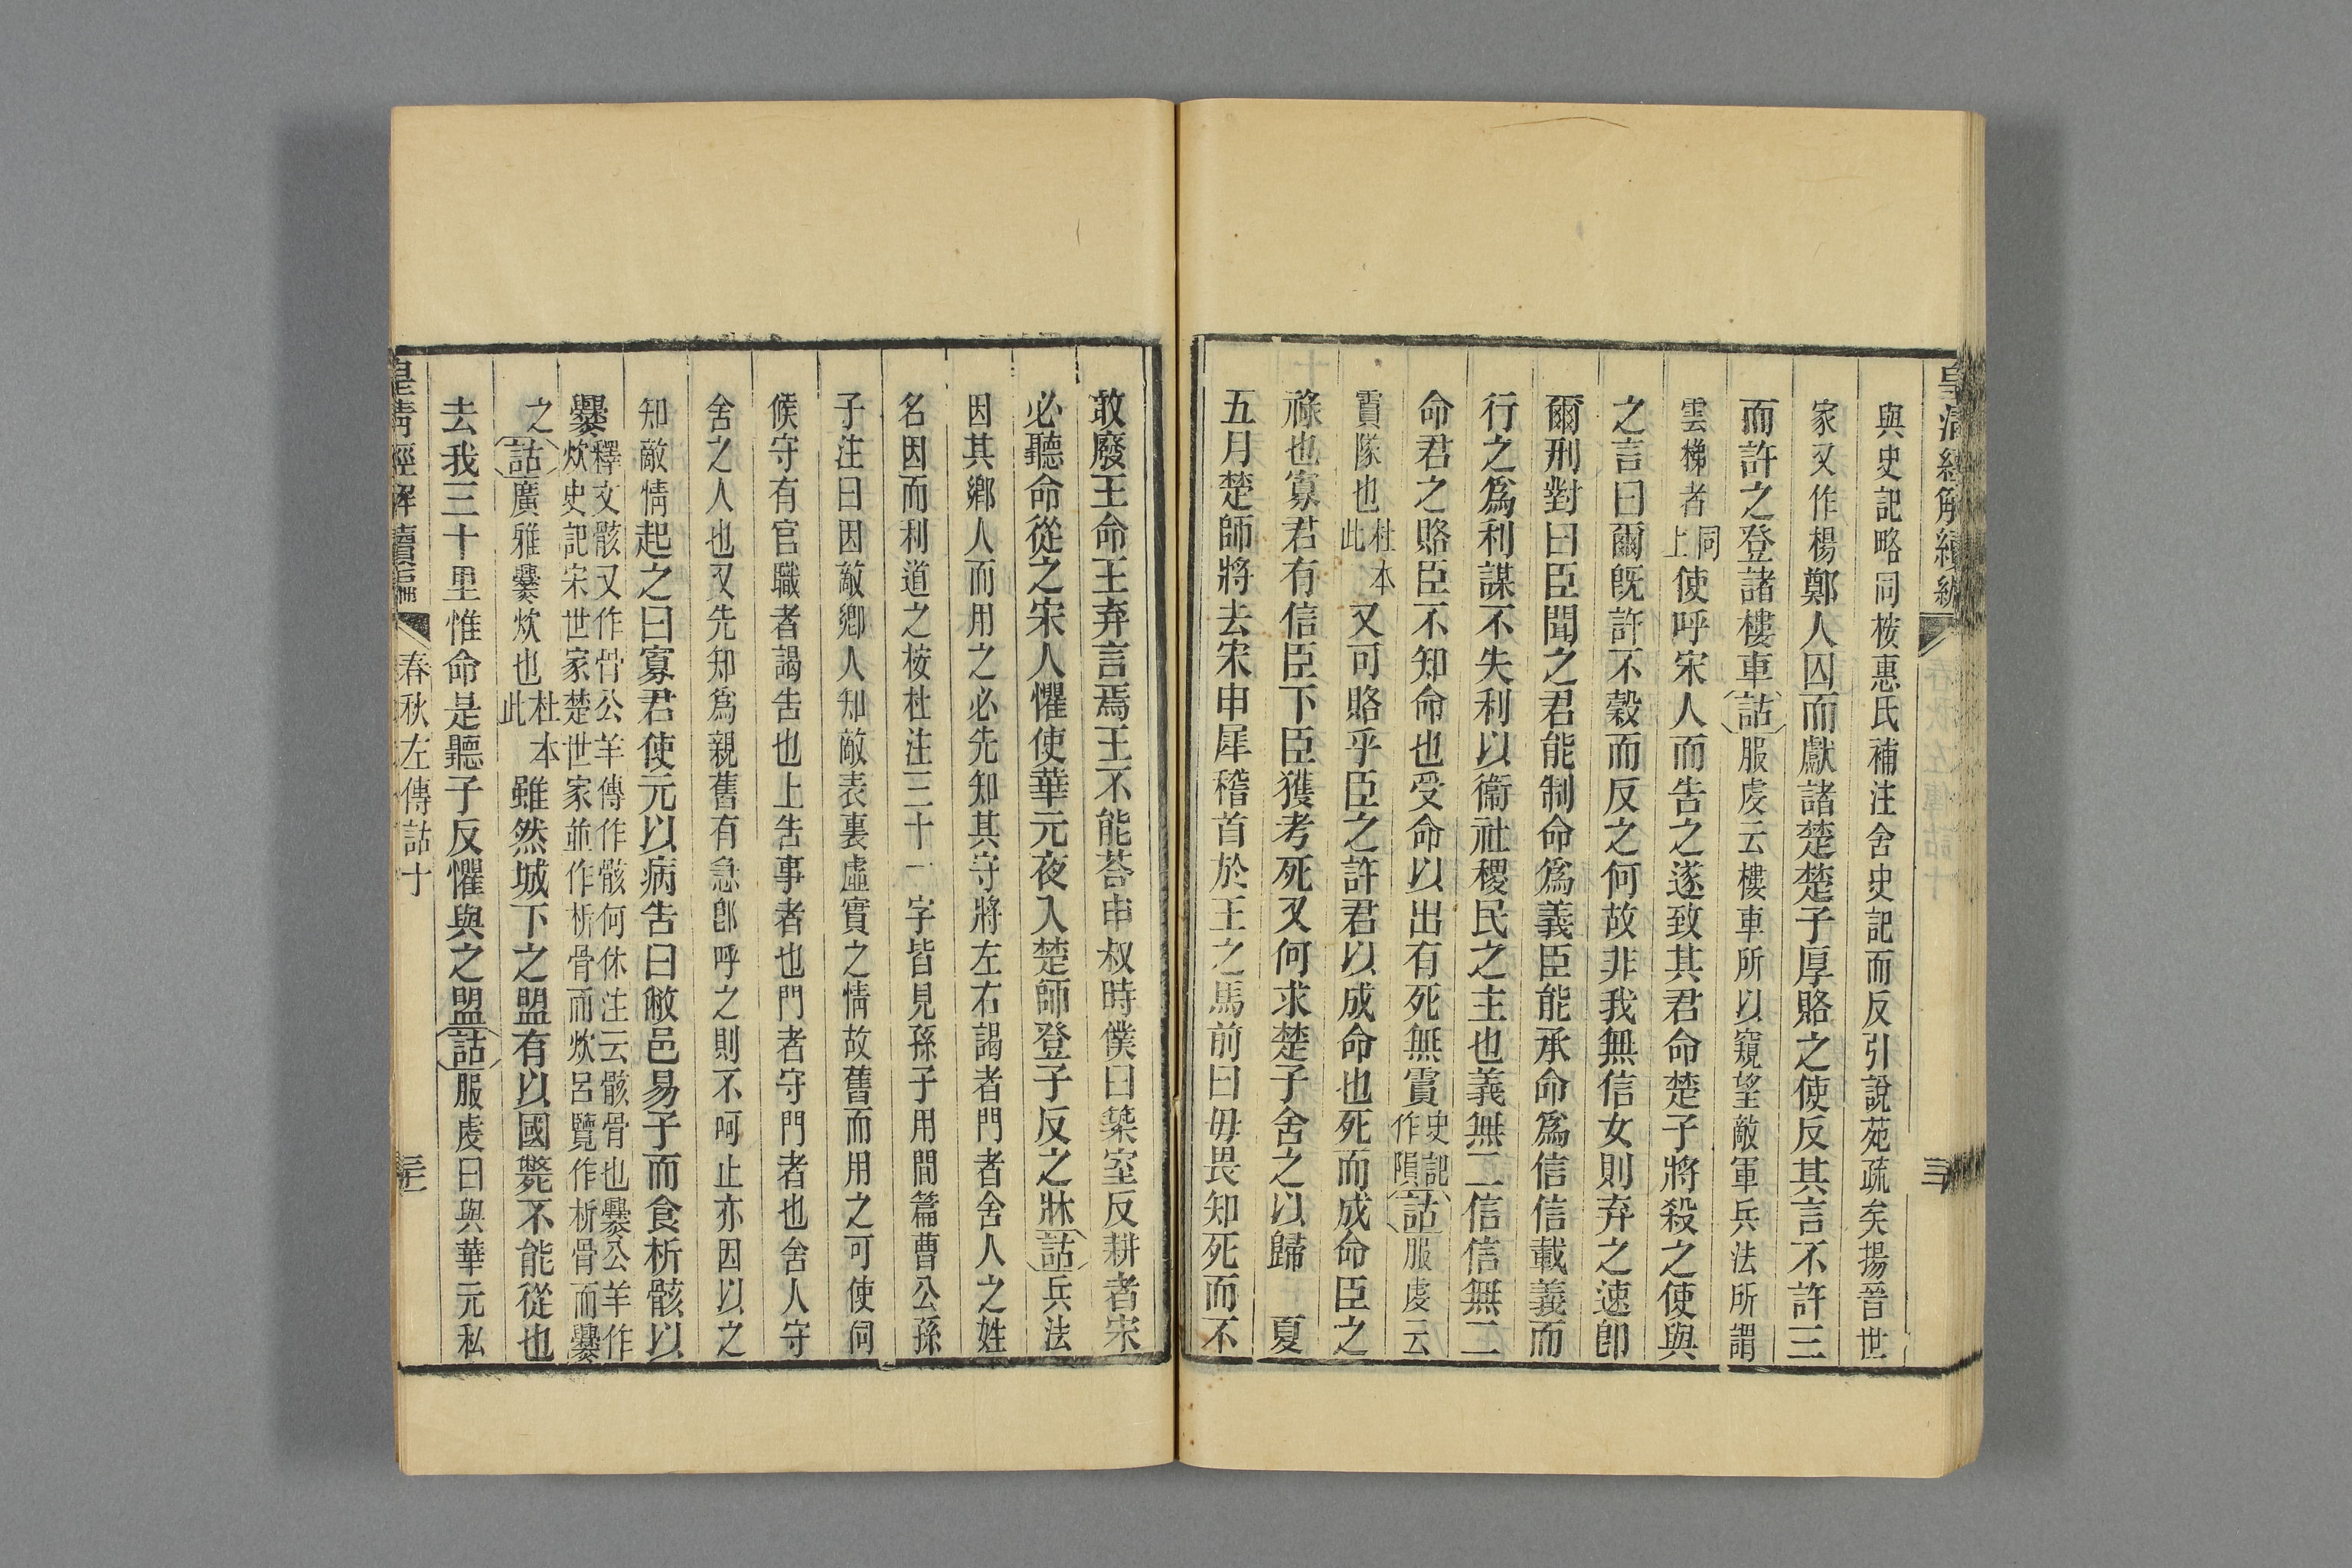 與史記略同桉惠氏補注舍史記而反引說苑疏矣揚晉世
家又作楊鄭人囚而獻諸楚楚子厚賂之使反其言不許三
而許之登諸樓車詁服虔云樓車所以窺望敵軍兵法所謂
雲梯者同上使呼宋人而告之遂致其君命楚子將殺之使與
之言曰爾旣許不穀而反之何故非我無信女則弃之速卽
爾刑對曰臣聞之君能制命爲義臣能承命爲信信載義而
行之爲利謀不失利以衞社稷民之主也義無二信信無二
命君之賂臣不知命也受命以出有死無霣史記作隕詁服虔云
霣隊也杜本此又可賂乎臣之許君以成命也死而成命臣之
祿也寡君有信臣下臣獲考死又何求楚子舍之以歸　夏
五月楚師將去宋申犀稽首於王之馬前曰毋畏知死而不
敢廢王命王弃言焉王不能荅申叔時僕曰築室反耕者宋
必聽命從之宋人懼使華元夜入楚師登子反之牀詁兵法
因其鄉人而用之必先知其守將左右謁者門者舍人之姓
名因而利道之桉杜注三十一字皆見孫子用間篇曹公孫
子注曰因敵鄉人知敵表裏虛實之情故舊而用之可使伺
候守有官職者謁告也上告事者也門者守門者也舍人守
舍之人也又先知爲親舊有急卽呼之則不呵止亦因以之
知敵情起之曰寡君使元以病告曰敝邑易子而食析骸以
爨釋文骸又作骨公羊傳作骸何休注云骸骨也爨公羊作
炊史記宋世家楚世家並作析骨而炊呂覽作析骨而爨
之詁廣雅爨炊也杜本此雖然城下之盟有以國斃不能從也
去我三十里惟命是聽子反懼與之盟詁服虔曰與華元私
皇清經解續編　春秋左傳詁十